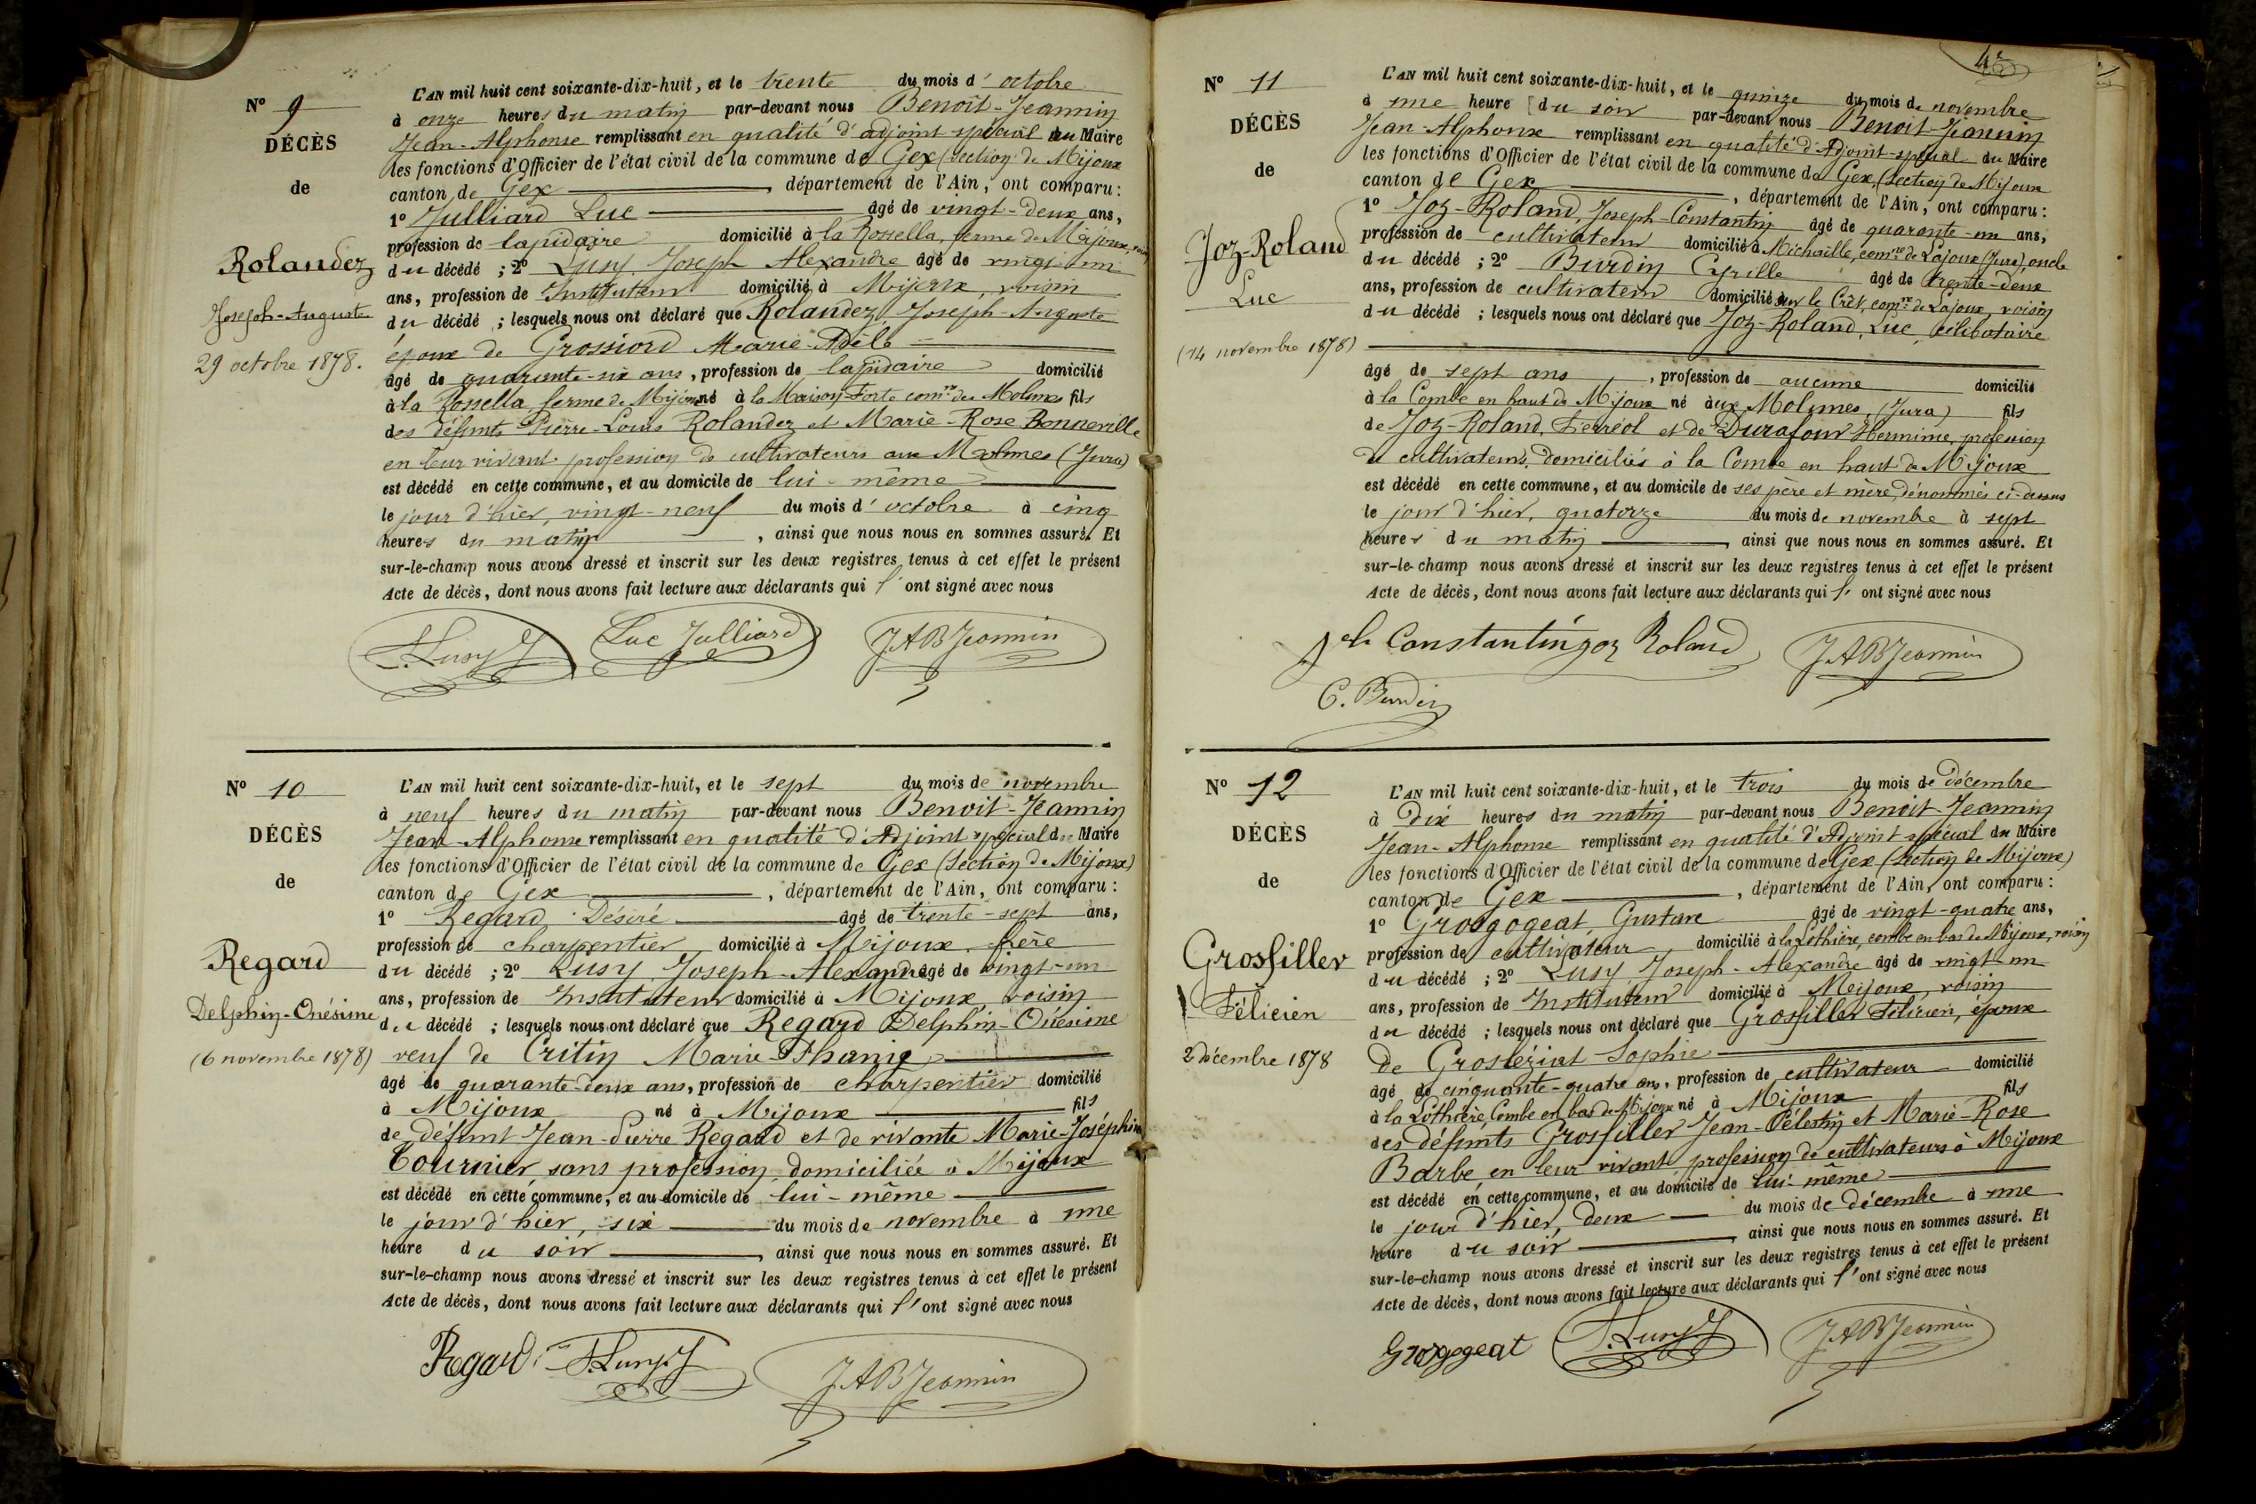 N° 9
DÉCÈS
de
Rolandez
Joseph-Auguste
29 octobre 1878.
L'AN mil huit cent soixante-dix-huit, et le trente du mois d'octobre
à onze heures du matin par-devant nous Benoit-Jeannin
Jean-Alphonse remplissant en qualité d'adjoint spécial au Maire
les fonctions d'Officier de l'état civil de la commune de Gex (section de Mijoux
canton de Gex, département de l'Ain, ont comparu:
1° Julliard Luc âgé de vingt-deux ans,
profession de lapidaire domicilié à la Rossella, ferme de Mijoux, voisin
du décédé; 2° Lusy, Joseph Alexandre âgé de vingt-un
ans, profession de Instituteur domicilié à Mijoux, voisin
du décédé; lesquels nous ont déclaré que Rolandez, Joseph-Auguste
époux de Grossiord Marie-Adèle
âgé de quarante-six ans, profession de lapidaire domicilié
à la Rossella, ferme de Mijoux né à la Maison-Forte comne des Molunes fils
des défunts Pierre-Louis Rolandez et Marie-Rose Bonneville
en leur vivant profession de cultivateurs aux Molunes (Jura)
est décédé en cette commune, et au domicile de lui-même
le jour d'hier, vingt-neuf du mois d'octobre à cinq
heures du matin, ainsi que nous nous en sommes assuré. Et
sur-le-champ nous avons dressé et inscrit sur les deux registres tenus à cet effet le présent
Acte de décès, dont nous avons fait lecture aux déclarants qui l'ont signé avec nous
A. Lusy J Luc Julliard JABJeannin
N° 10
DÉCÈS
de
Regard
Delphin-Onésime
(6 novembre 1878)
L'AN mil huit cent soixante-dix-huit, et le sept du mois de novembre
à neuf heures du matin par-devant nous Benoit-Jeannin
Jean-Alphonse remplissant en qualité d'Adjoint spécial du Maire
les fonctions d'Officier de l'état civil de la commune de Gex (section de Mijoux)
canton de Gex, département de l'Ain, ont comparu:
1° Regard Désiré âgé de trente-sept ans,
profession de charpentier domicilié à Mijoux, frère
du décédé; 2° Lusy Joseph-Alexandre âgé de vingt-un
ans, profession de Instituteur domicilié à Mijoux, voisin
du décédé; lesquels nous ont déclaré que Regard Delphin-Onésime
veuf de Critin Marie-Phanie
âgé de quarante-deux ans, profession de charpentier domicilié
à Mijoux né à Mijoux fils
de défunt Jean-Pierre Regard et de vivante Marie-Joséphine
Tournier, sans profession, domiciliée à Mijoux
est décédé en cette commune, et au domicile de lui-même
le jour d'hier, six du mois de novembre à une
heure du soir, ainsi que nous nous en sommes assuré. Et
sur-le-champ nous avons dressé et inscrit sur les deux registres tenus à cet effet le présent
Acte de décès, dont nous avons fait lecture aux déclarants qui l'ont signé avec nous
Regard A. Lusy J JABJeannin
N° 11
DÉCÈS
de
Joz-Roland
Luc
(14 novembre 1878)
L'AN mil huit cent soixante-dix-huit, et le quinze du mois de novembre
à une heure du soir par-devant nous Benoit-Jeannin
Jean-Alphonse remplissant en qualité d'Adjoint-spécial du Maire
les fonctions d'Officier de l'état civil de la commune de Gex, (section de Mijoux
canton de Gex, département de l'Ain, ont comparu:
1° Joz-Roland, Joseph-Constantin âgé de quarante-un ans,
profession de cultivateur domicilié à Michaille, comne de Lajoux (Jura), oncle
du décédé; 2° Burdin Cyrille âgé de trente-deux
ans, profession de cultivateur domicilié sur le Crêt, comne de Lajoux, voisin
du décédé; lesquels nous ont déclaré que Joz-Roland, Luc, célibataire
âgé de sept ans, profession de aucune domicilié
à la Combe en haut de Mijoux né aux Molunes, (Jura) fils
de Joz-Roland, Ferréol et de Durafour Hermine, profession
de cultivateurs, domiciliés à la Combe en haut de Mijoux
est décédé en cette commune, et au domicile de ses père et mère, dénommés ci-dessus
le jour d'hier, quatorze du mois de novembre à sept
heures du matin, ainsi que nous nous en sommes assuré. Et
sur-le-champ nous avons dressé et inscrit sur les deux registres tenus à cet effet le présent
Acte de décès, dont nous avons fait lecture aux déclarants qui l'ont signé avec nous
Jph Constantin joz Roland JABJeannin
C. Burdin
N° 12
DÉCÈS
de
Grosfiller
Félicien
2 décembre 1878
L'AN mil huit cent soixante-dix-huit, et le trois du mois de décembre
à dix heures du matin par-devant nous Benoit-Jeannin
Jean-Alphonse remplissant en qualité d'Adjoint-spécial du Maire
les fonctions d'Officier de l'état civil de la commune de Gex (section de Mijoux)
canton de Gex, département de l'Ain, ont comparu:
1° Grosgogeat, Gustave âgé de vingt-quatre ans,
profession de cultivateur domicilié à la Lothière, combe en bas de Mijoux, voisin
du décédé; 2° Lusy Joseph-Alexandre âgé de vingt-un
ans, profession de Instituteur domicilié à Mijoux, voisin
du décédé; lesquels nous ont déclaré que Grosfiller Félicien, époux
de Grosléziat Sophie
âgé de cinquante-quatre ans, profession de cultivateur domicilié
à la Lothière, Combe en bas de Mijoux né à Mijoux fils
des défunts Grosfiller Jean-Célestin et Marie-Rose
Barbe, en leur vivant profession de cultivateurs à Mijoux
est décédé en cette commune, et au domicile de lui-même
le jour d'hier, deux du mois de décembre à une
heure du soir, ainsi que nous nous en sommes assuré. Et
sur-le-champ nous avons dressé et inscrit sur les deux registres tenus à cet effet le présent
Acte de décès, dont nous avons fait lecture aux déclarants qui l'ont signé avec nous
Grosgogeat A. Lusy J JABJeannin